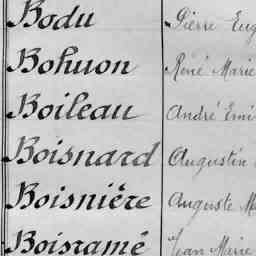 Bodu Pierre Eug
Bohuon René Marie
Boileau André Emi
Boisnard Augustin
Boisnière Auguste Ma
Boisramé Jean Marie